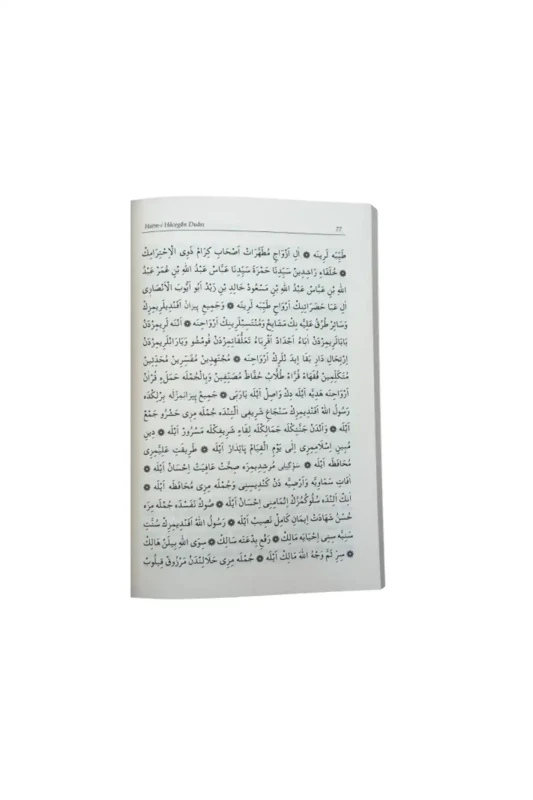 Hatm-i Hâcegân Duâsı 77
طَيِّبَه لَرِينَه ۞ اٰلِ اَزْوَاجِ مُطَهَّرَاتْ اَصْحَابِ كِرَامْ ذَوِى الْاِحْتِرَامِكْ
۞ خُلَفَاءِ رَاشِدِينْ سَيِّدِنَا حَمْزَه سَيِّدِنَا عَبَّاسْ عَبْدُ اللهِ بْنِ عُمَرْ عَبْدُ
اللهِ بْنِ عَبَّاسْ عَبْدُ اللهِ بْنِ مَسْعُودْ خَالِدِ بْنِ زَيْدْ اَبُو اَيُّوبَ الْاَنْصَارِى
اٰلِ عَبَا حَضَرَاتِنِكْ اَرْوَاحِ طَيِّبَه لَرِينَه ۞ وَجَمِيعِ پِيرَانْ اَفَنْدِيلَرِيمِزِكْ
وَسَائِرِ طُرُقِ عَلِيَّه نِكْ مَشَايِخْ وَمُنْتَسِبْلَرِينِكْ اَرْوَاحِنَه ۞ اٰنْنَه لَرِيمِزْدَنْ
بَابَالَرِيمِزْدَنْ اٰبَاءْ اَجْدَادْ اَقْرِبَاءْ تَعَلُّقَاتِمِزْدَنْ قُومْشُو وَيَارَانْلَرِيمِزْدَنْ
اِرْتِحَالِ دَارِ بَقَا اِيدَنْلَرِكْ اَرْوَاحِنَه ۞ مُجْتَهِدِينْ مُفَسِّرِينْ مُحَدِّثِينْ
مُتَكَلِّمِينْ فُقَهَاءْ قُرَّاءْ طُلَّابْ حُفَّاظْ مُصَنِّفِينْ وَبِالْجُمْلَه حَمَلَهِ قُرْاٰنْ
اَرْوَاحِنَه هَدِيَّه اَيْلَه دِكْ وَاصِلْ اَيْلَه يَارَبِّى ۞ جَمِيعِ پِيرَانِمِزْلَه بِرْلِكْدَه
رَسُولُ اللهْ اَفَنْدِيمِزِكْ سَنْجَاغِ شَرِيفِى اَلْتِنْدَه جُمْلَه مِزِى حَشْرُو جَمْعْ
اَيْلَه ۞ وَاٰنْدَنْ جَنَّتِكْلَه جَمَالِكْلَه لِقَاءِ شَرِيفِكْلَه مَسْرُورْ اَيْلَه ۞ دِينِ
مُبِينِ اِسْلَامِمِزِى اِلٰى يَوْمِ الْقِيَامْ پَايْدَارْ اَيْلَه ۞ طَرِيقَتِ عَلِيَّمِزِى
مُحَافَظَه اَيْلَه ۞ سَوْكِيلِى مُرْشِدِيمِزَه صِحَّتْ عَافِيَتْ اِحْسَانْ اَيْلَه ۞
اٰفَاتِ سَمَاوِيَّه وَاَرْضِيَّه دَنْ كَنْدِيسِنِى وَجُمْلَه مِزِى مُحَافَظَه اَيْلَه ۞
اٰنِكْ اَلْنِدَه سُلُوكُمُزِكْ اِتْمَامِنِى اِحْسَانْ اَيْلَه ۞ صُوكْ نَفَسْدَه جُمْلَه مِزَه
حُسْنِ شَهَادَتْ اِيمَانِ كَامِلْ نَصِيبْ اَيْلَه ۞ رَسُولُ اللهْ اَفَنْدِيمِزِكْ سُنَّتِ
سَنِيَّه سِنِى اِحْيَايَه مَالِكْ ۞ رَفْعِ بِدْعَتَه سَالِكْ ۞ سِوَى اللهِ بِيلَنْ هَالِكْ
۞ سِرِّ ثَمَّ وَجْهُ اللهْ مَالِكْ اَيْلَه ۞ جُمْلَه مِزِى حَلَالِنْدَنْ مَرْزُوقْ قِيلُوبْ